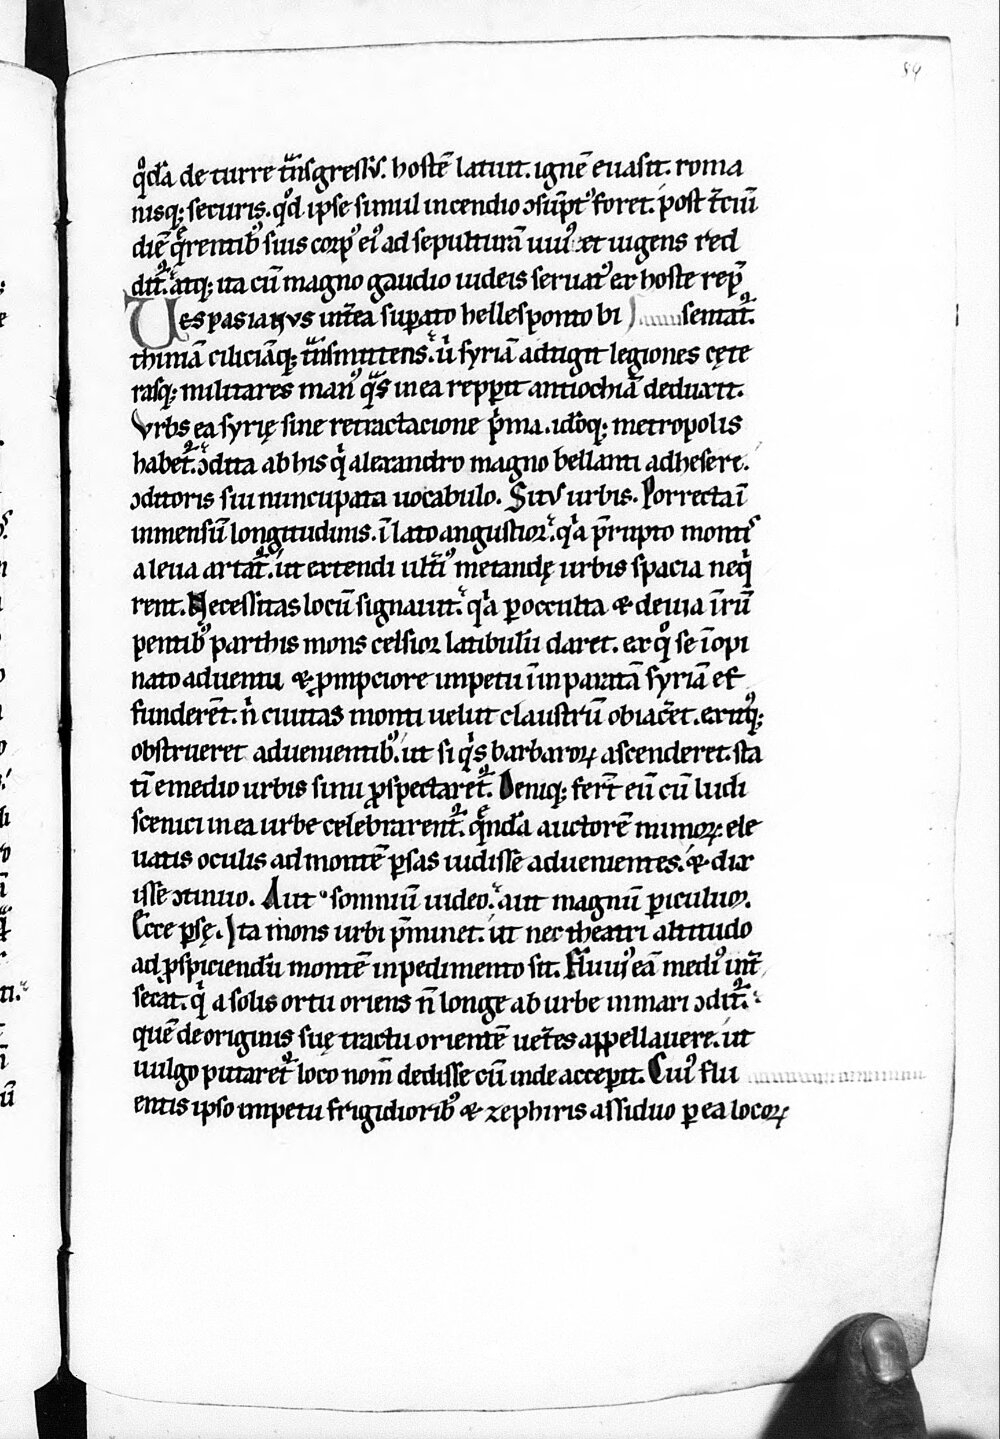 59
qͦda de turre tͣnsgressꝰ. hostē latuit. ignē euasit. roma
nisq; securis. qͦd ipse simul incendio ↄsūptꝰ foret. post t̄ciū
diē qͣrentibꝰ suis corpꝰ eiꝰ ad sepulturā uiuꝰ et uigens red
dit᷑. atq; ita cū magno gaudio iudeis seruatꝰ ex hoste rep̄
sentat᷑.
Vespasianvs int̄ea suꝑato hellesponto bi
thiniā ciliciāq; tͣnsmittens. ut̓ syriā attigit legiones cęte
rasq; militares manꝰ qͣs in ea repꝑit antiochiā deduxit.
Vrbs ea syrię sine retractacione pͥma. idōq; metropolis
habet᷑. ↄdita ab his qͥ alexandro magno bellanti adheser̄t.
ↄditoris sui nuncupata uocabulo. Sitvs urbis. Porrecta ī
inmensū longitudinis. ī lato angustior. qͥa p̄rupto montis
a leua artat᷑. ut extendi ultͥꝰ metandę urbis spacia neqͥ
rent. Necessitas locū signauit. qͥa ꝑ occulta & deuia īrū
pentibꝰ parthis mons celsior latibulū daret. ex qͦ se īopi
nato aduentu & ꝓmpciore impetu ī inparatā syriā ef
funderēt. nͥ ciuitas monti uelut claustrū obiac̄et. exitūq;
obstrueret aduenientibꝰ. ut si qͥs barbaroꝝ ascenderet. sta
tī e medio urbis sinu ꝓspectaret᷑. Deniq; fert̄ eū cū ludi
scenici in ea urbe celebrarent᷑. quēndā auctorē mimoꝝ ele
uatis oculis ad montē ꝑsas uidisse aduenientes. & dix
isse ↄtinuo. Aut somniū uideo. aut magnū ꝑiculum.
Ecce ꝑsę. Ita mons urbi p̄minet. ut nec theatri altitudo
ad ꝓspiciendū montē inpedimento sit. Fluuiꝰ eā mediꝰ int̄
secat. qͥ a solis ortu oriens n̄ longe ab urbe in mari ↄdit᷑.
quē de originis suę tractu orientē uet̄es appellauere. ut
uulgo putaret᷑ loco nom̄ dedisse cū inde acceꝑit. Cuiꝰ flu
entis ipso impetu frigidioribꝰ & zephiris assiduo ꝑ ea locoꝝ